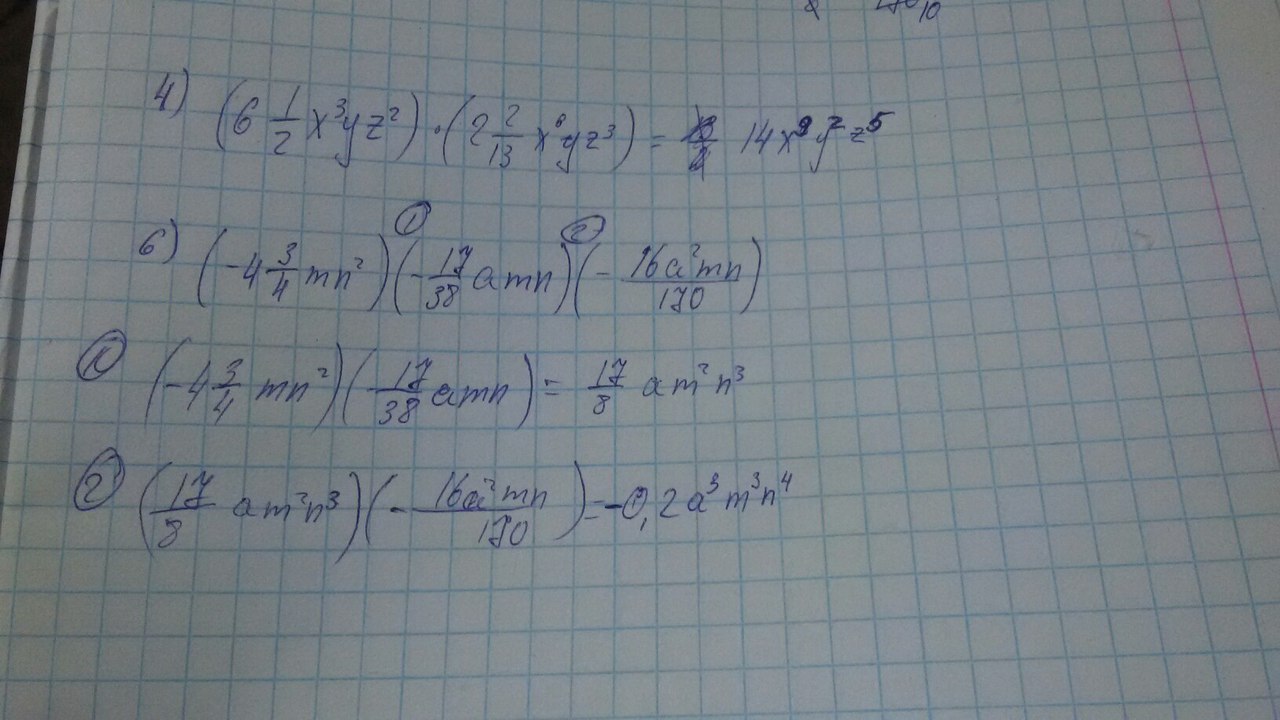 4) (6 1/2 x³yz²) · (2 2/13 x⁶yz³) = 14x⁹y²z⁵
① ②
6) (-4 3/4 mn²)(-17/38 amn)(-16a²mn/170)
① (-4 3/4 mn²)(-17/38 amn) = 17/8 am²n³
② (17/8 am²n³)(-16a²mn/170) = -0,2a³m³n⁴